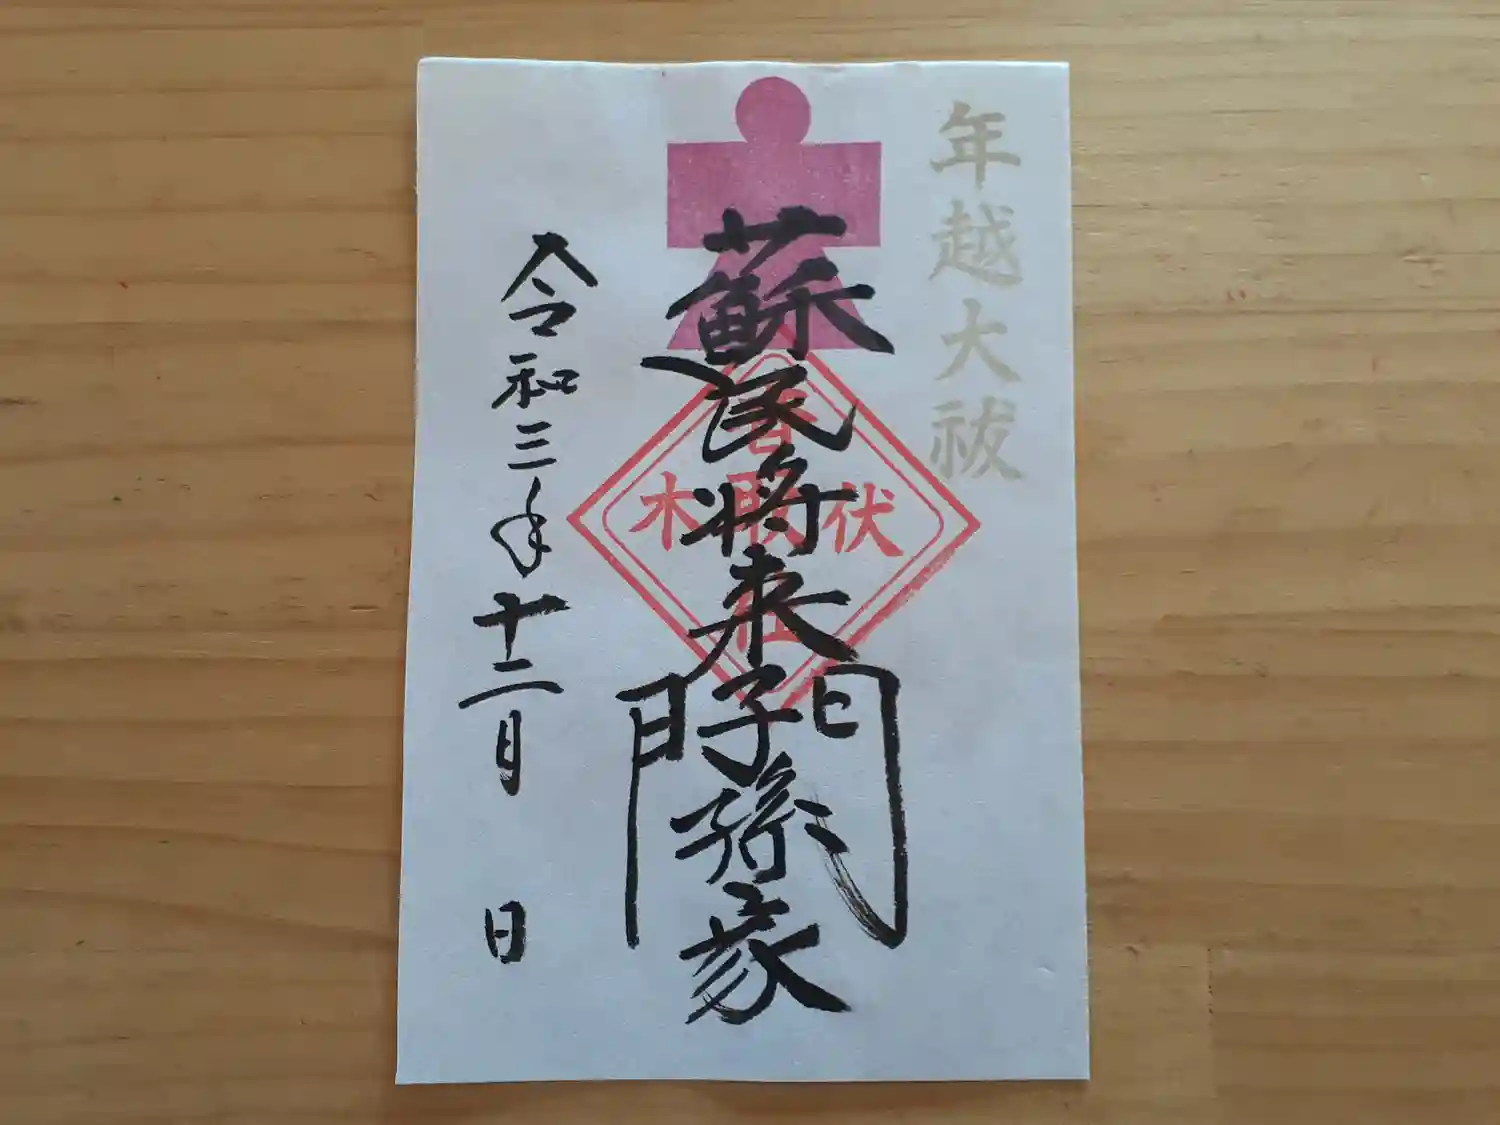 年越大祓
蘇民将来子孫家門
伏木
香取社
令和三年十二月 日